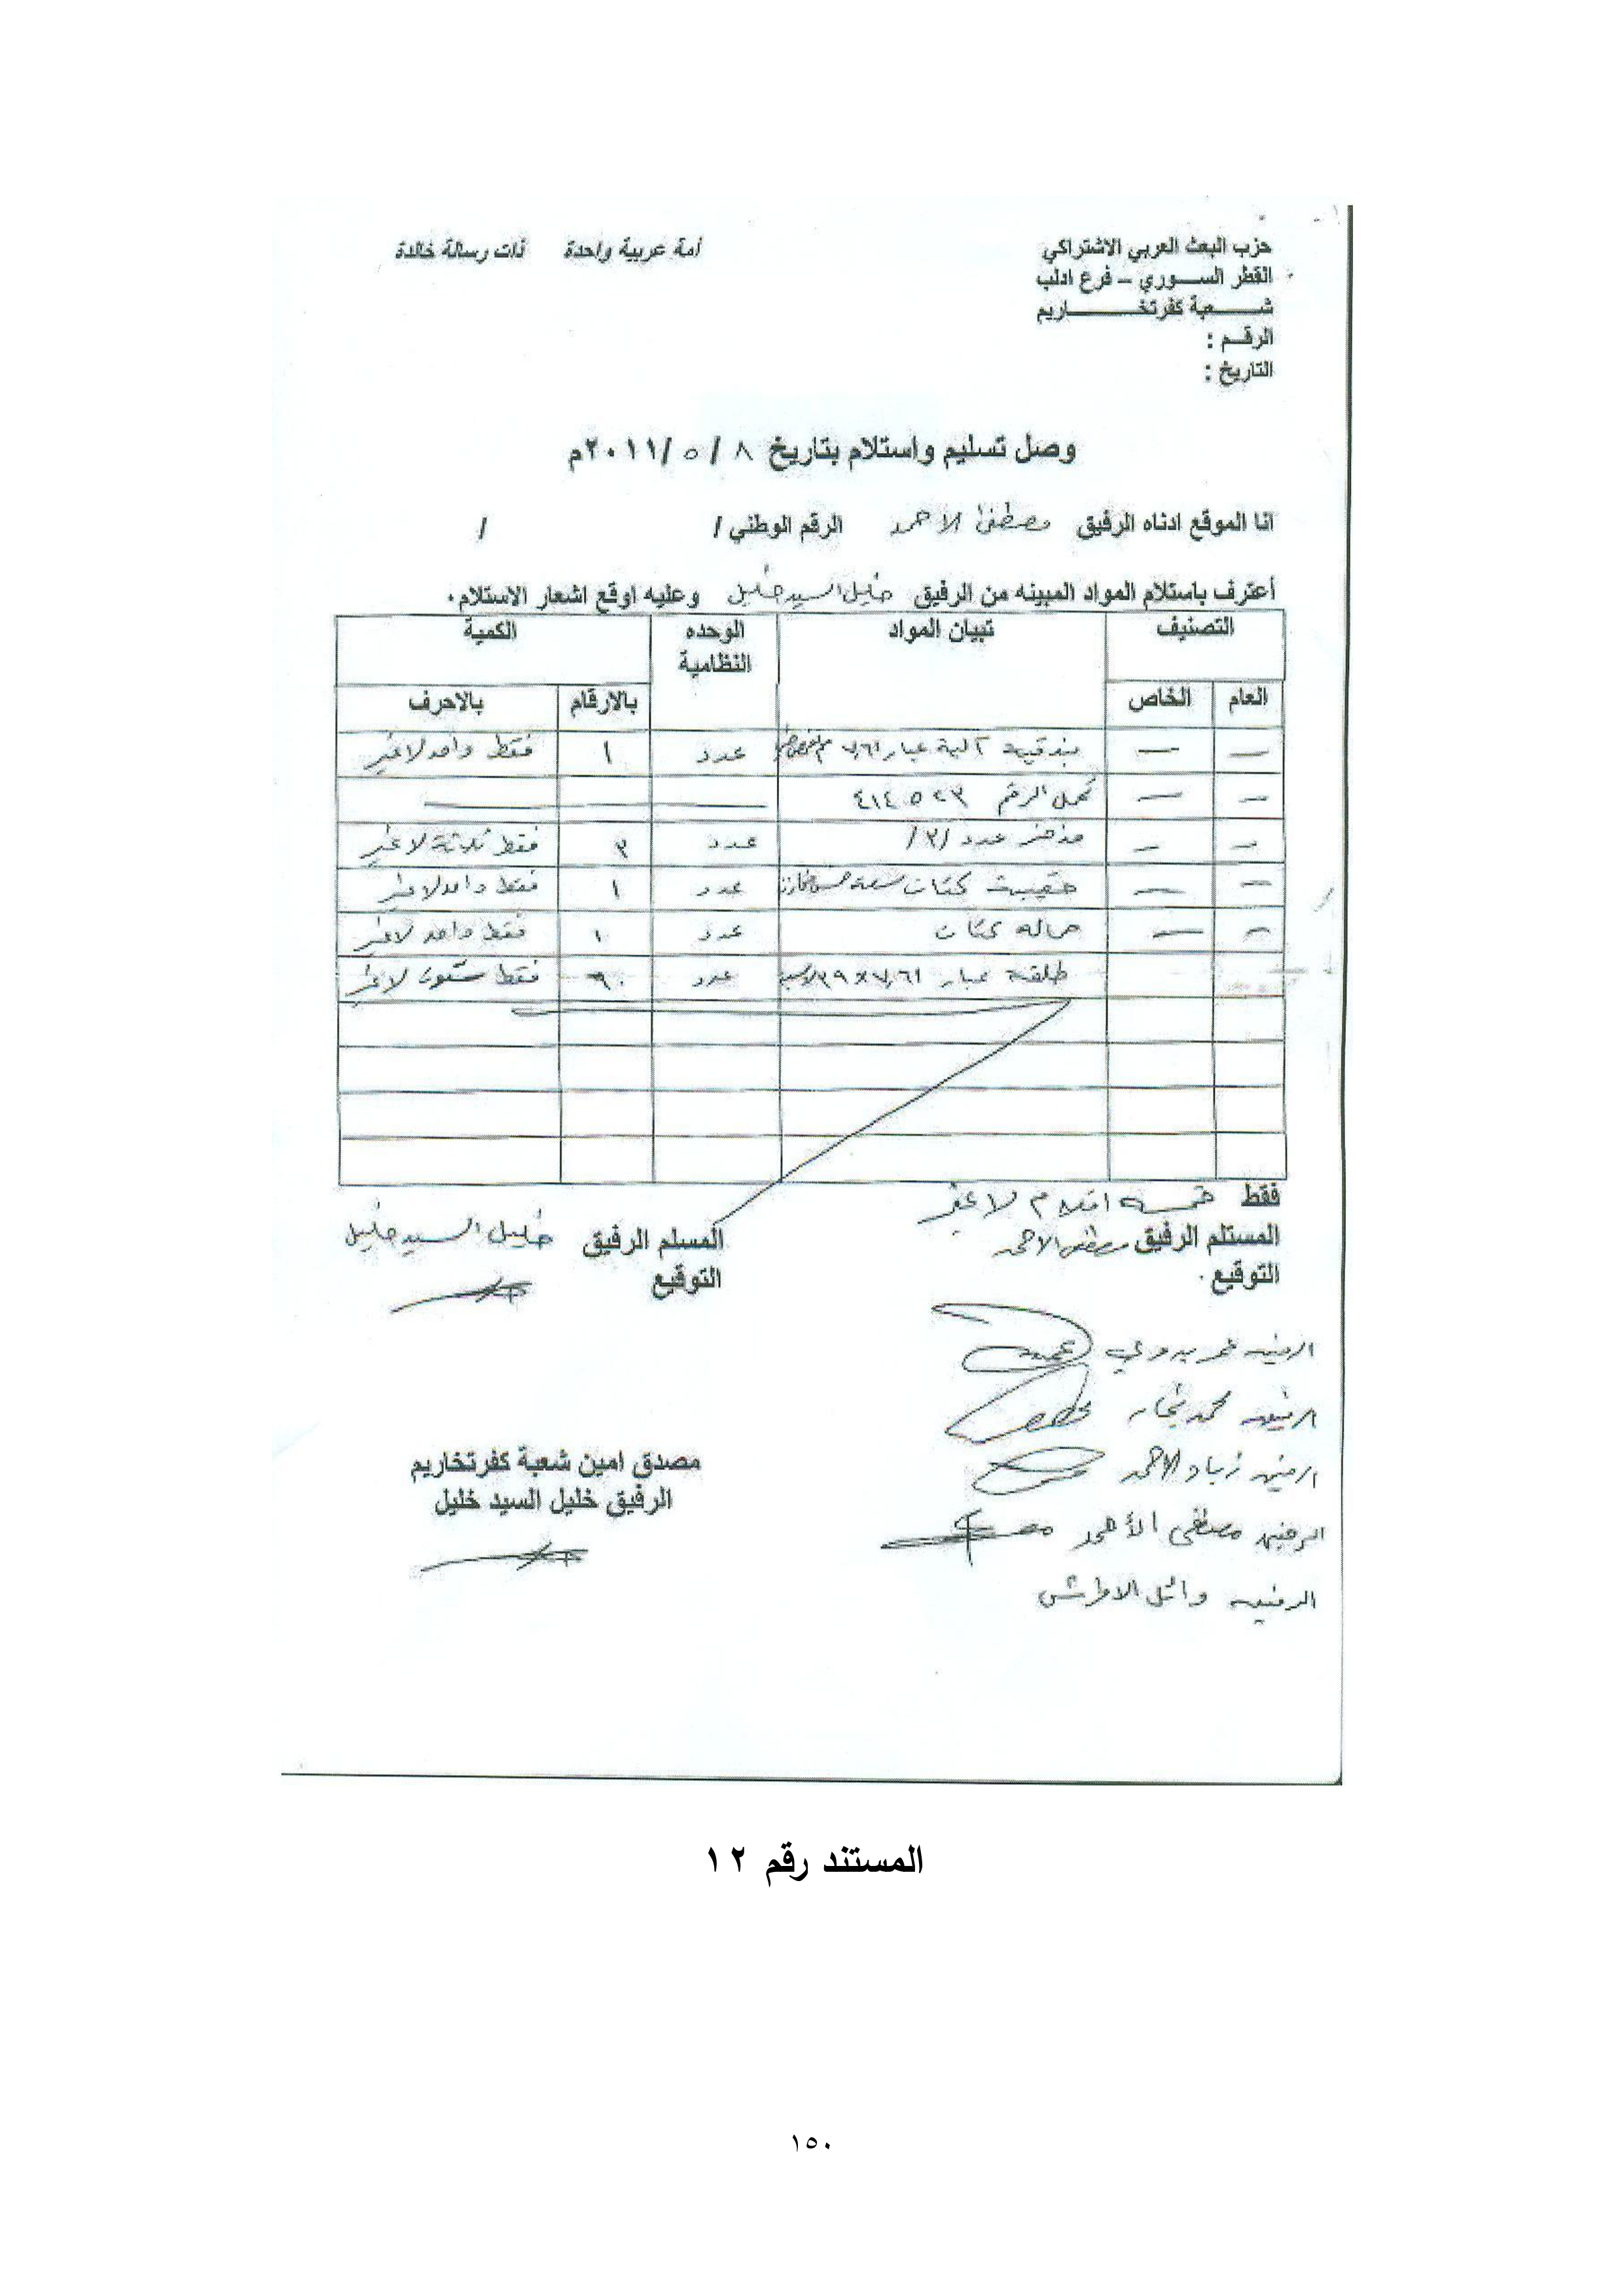 حزب البعث العربي الاشتراكي
القطر السوري – فرع ادلب
شعبة كفرتخاريم
الرقم :
التاريخ :
أمة عربية واحدة ذات رسالة خالدة
وصل تسليم واستلام بتاريخ ٨ / ٥ /٢٠١١م
انا الموقع ادناه الرفيق مصطفى الاحمد الرقم الوطني / /
أعترف باستلام المواد المبينه من الرفيق خليل السيد خليل وعليه اوقع اشعار الاستلام.
التصنيف تبيان المواد الوحده النظامية الكمية
العام الخاص بالارقام بالاحرف
— — بندقية آلية عيار ٧,٦١ عدد ١ فقط واحد لاغير
— — تحمل الرقم ٤١٤٥٢٣
— — مذخر عدد /٣/ عدد ٣ فقط ثلاثة لاغير
— — حقيبة كتان عدد ١ فقط واحد لاغير
— — حماله كتان عدد ١ فقط واحد لاغير
طلقة عيار ٧,٦١×٣٩ عدد ٩٠ فقط لاغير
فقط خمسة اقلام لاغير
المستلم الرفيق مصطفى الاحمد
التوقيع
المسلم الرفيق خليل السيد خليل
التوقيع
الرفيق عمر بدوي
الرفيق محمد نجار
الرفيق زياد الاحمد
الرفيق مصطفى الأحمد
الرفيق وائل الاطرش
مصدق امين شعبة كفرتخاريم
الرفيق خليل السيد خليل
المستند رقم ١٢
١٥٠